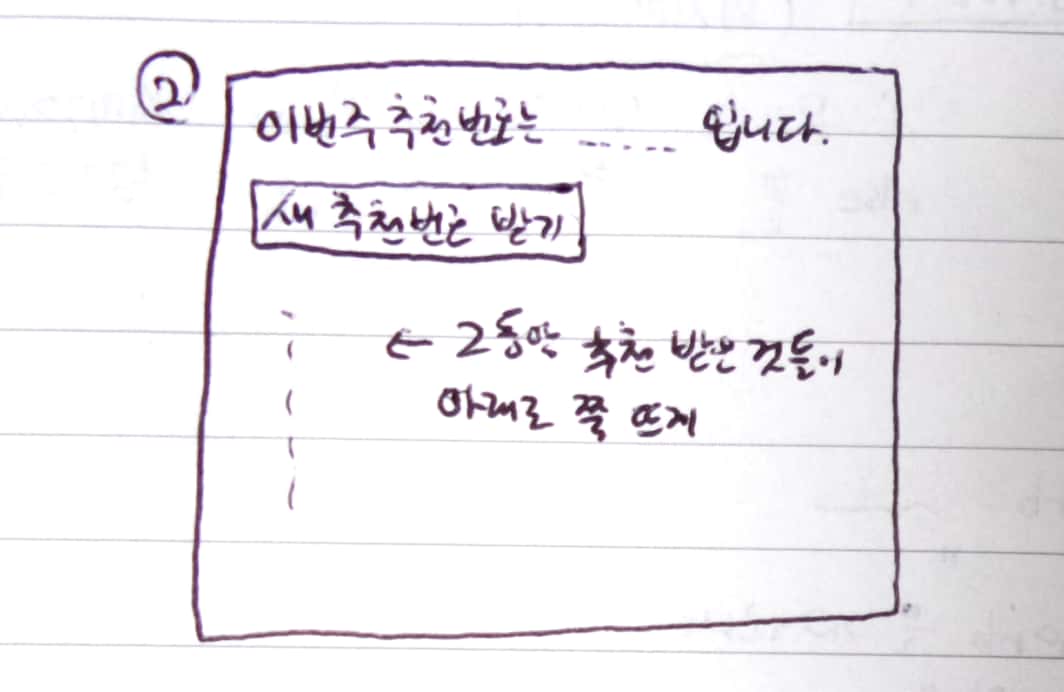 ②
이번주 추천번호는 ...... 입니다.
새 추천번호 받기
← 그동안 추천 받은 것들이
아래로 쭉 뜨게